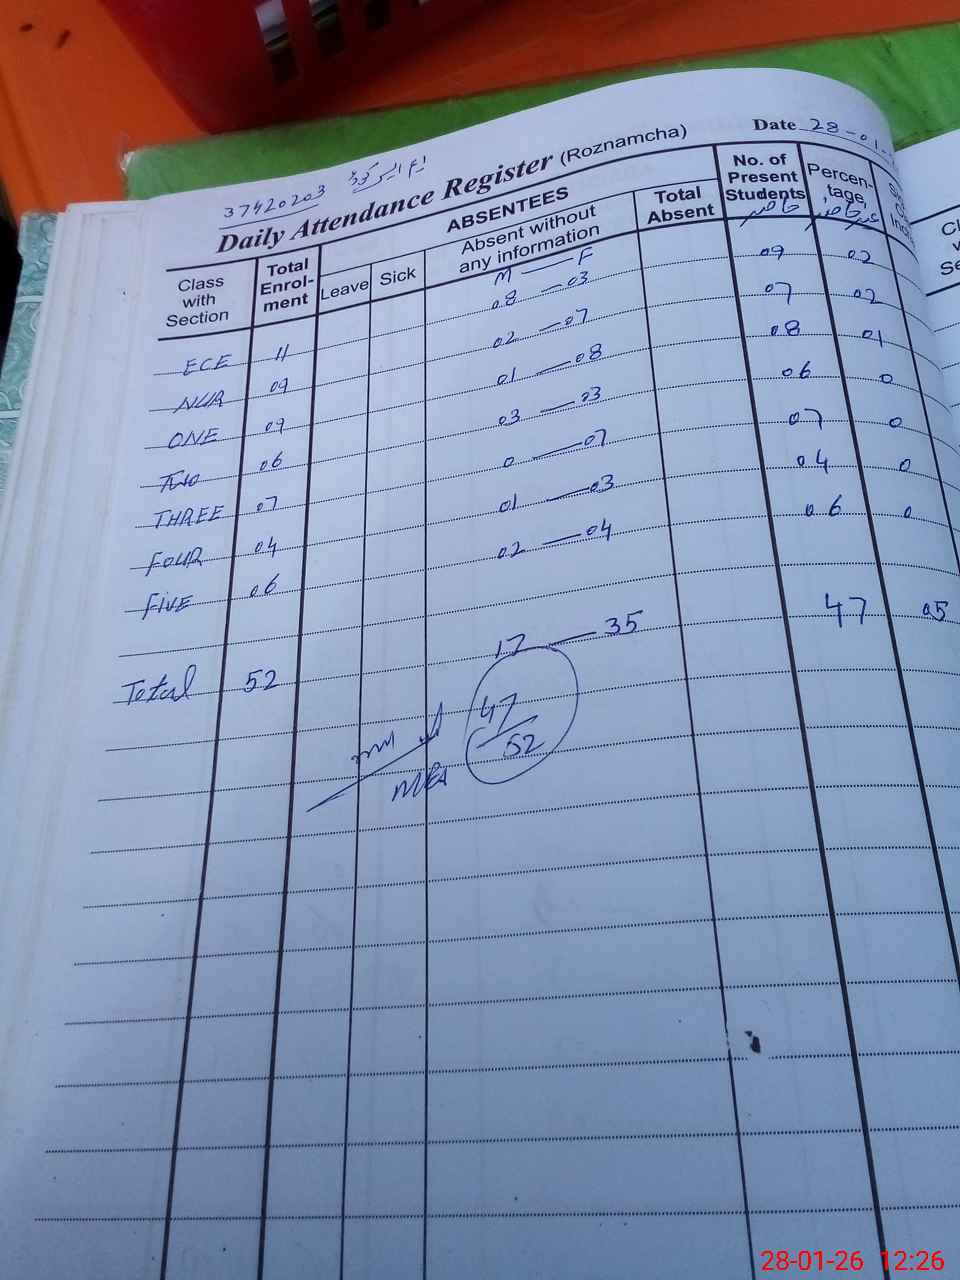 37420203 ایم ایس کوڈ
Daily Attendance Register (Roznamcha)
Date 28-01-
Class with Section
Total Enrol-ment
ABSENTEES
Leave
Sick
Absent without any information
Total Absent
No. of Present Students
حاضر
Percen-tage
غیر حاضر
M — F
ECE 11 08 — 03 09 02
NUR 09 02 — 07 07 02
ONE 09 01 — 08 08 01
TWO 06 03 — 03 06 0
THREE 07 0 — 07 07 0
FOUR 04 01 — 03 04 0
FIVE 06 02 — 04 06 0
Total 52 17 — 35 47 05
47
52
28-01-26 12:26